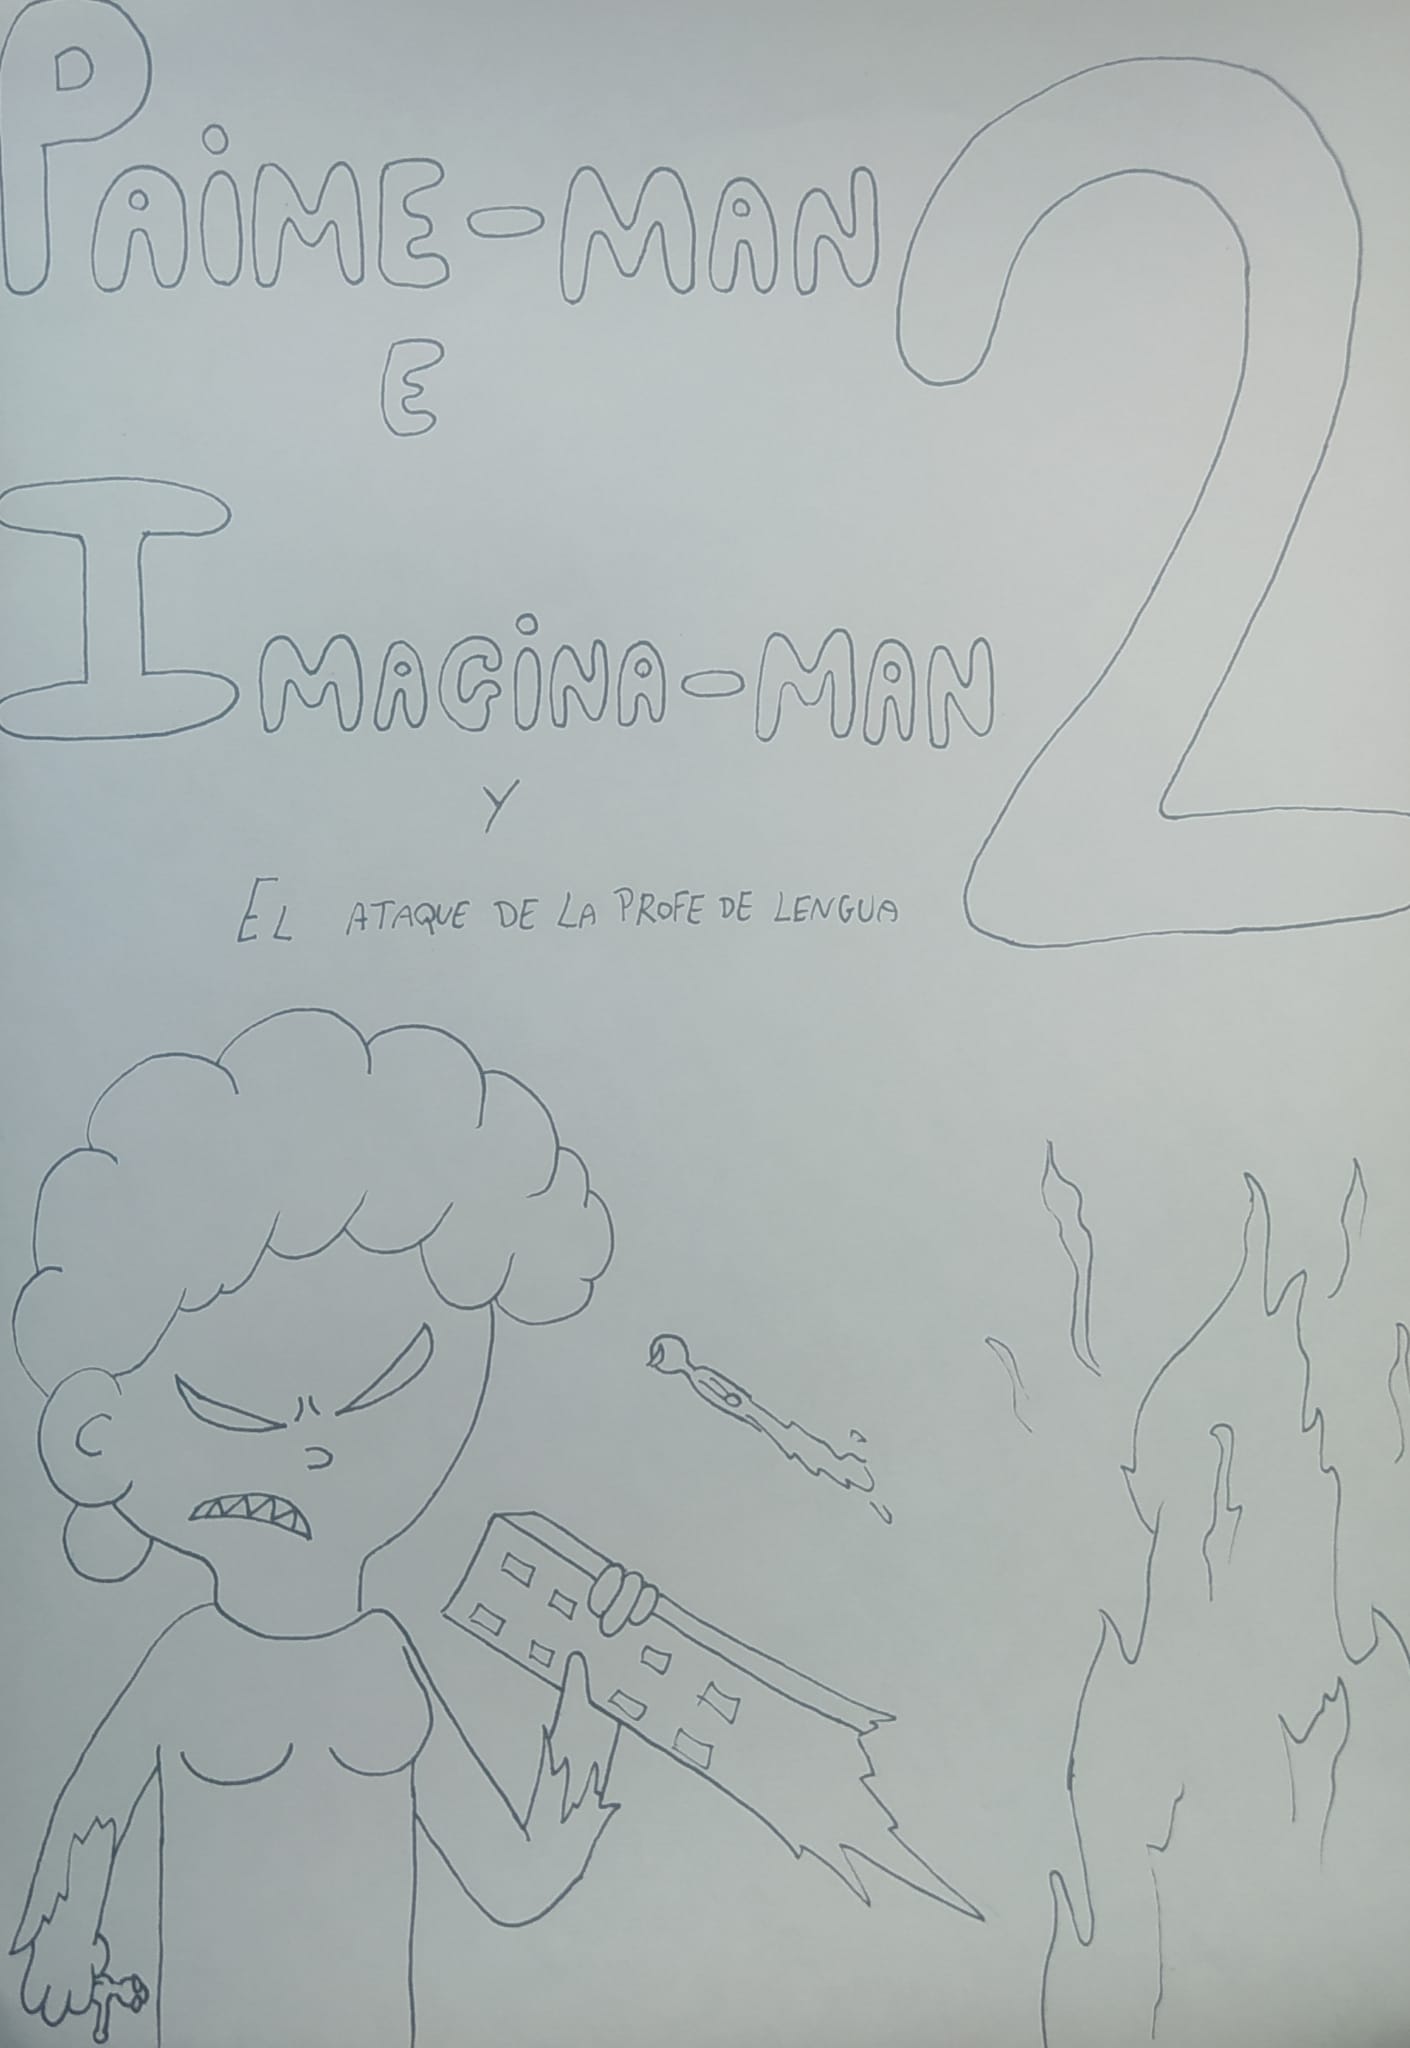 PAIME-MAN
E
IMAGINA-MAN
2
Y
EL ATAQUE DE LA PROFE DE LENGUA